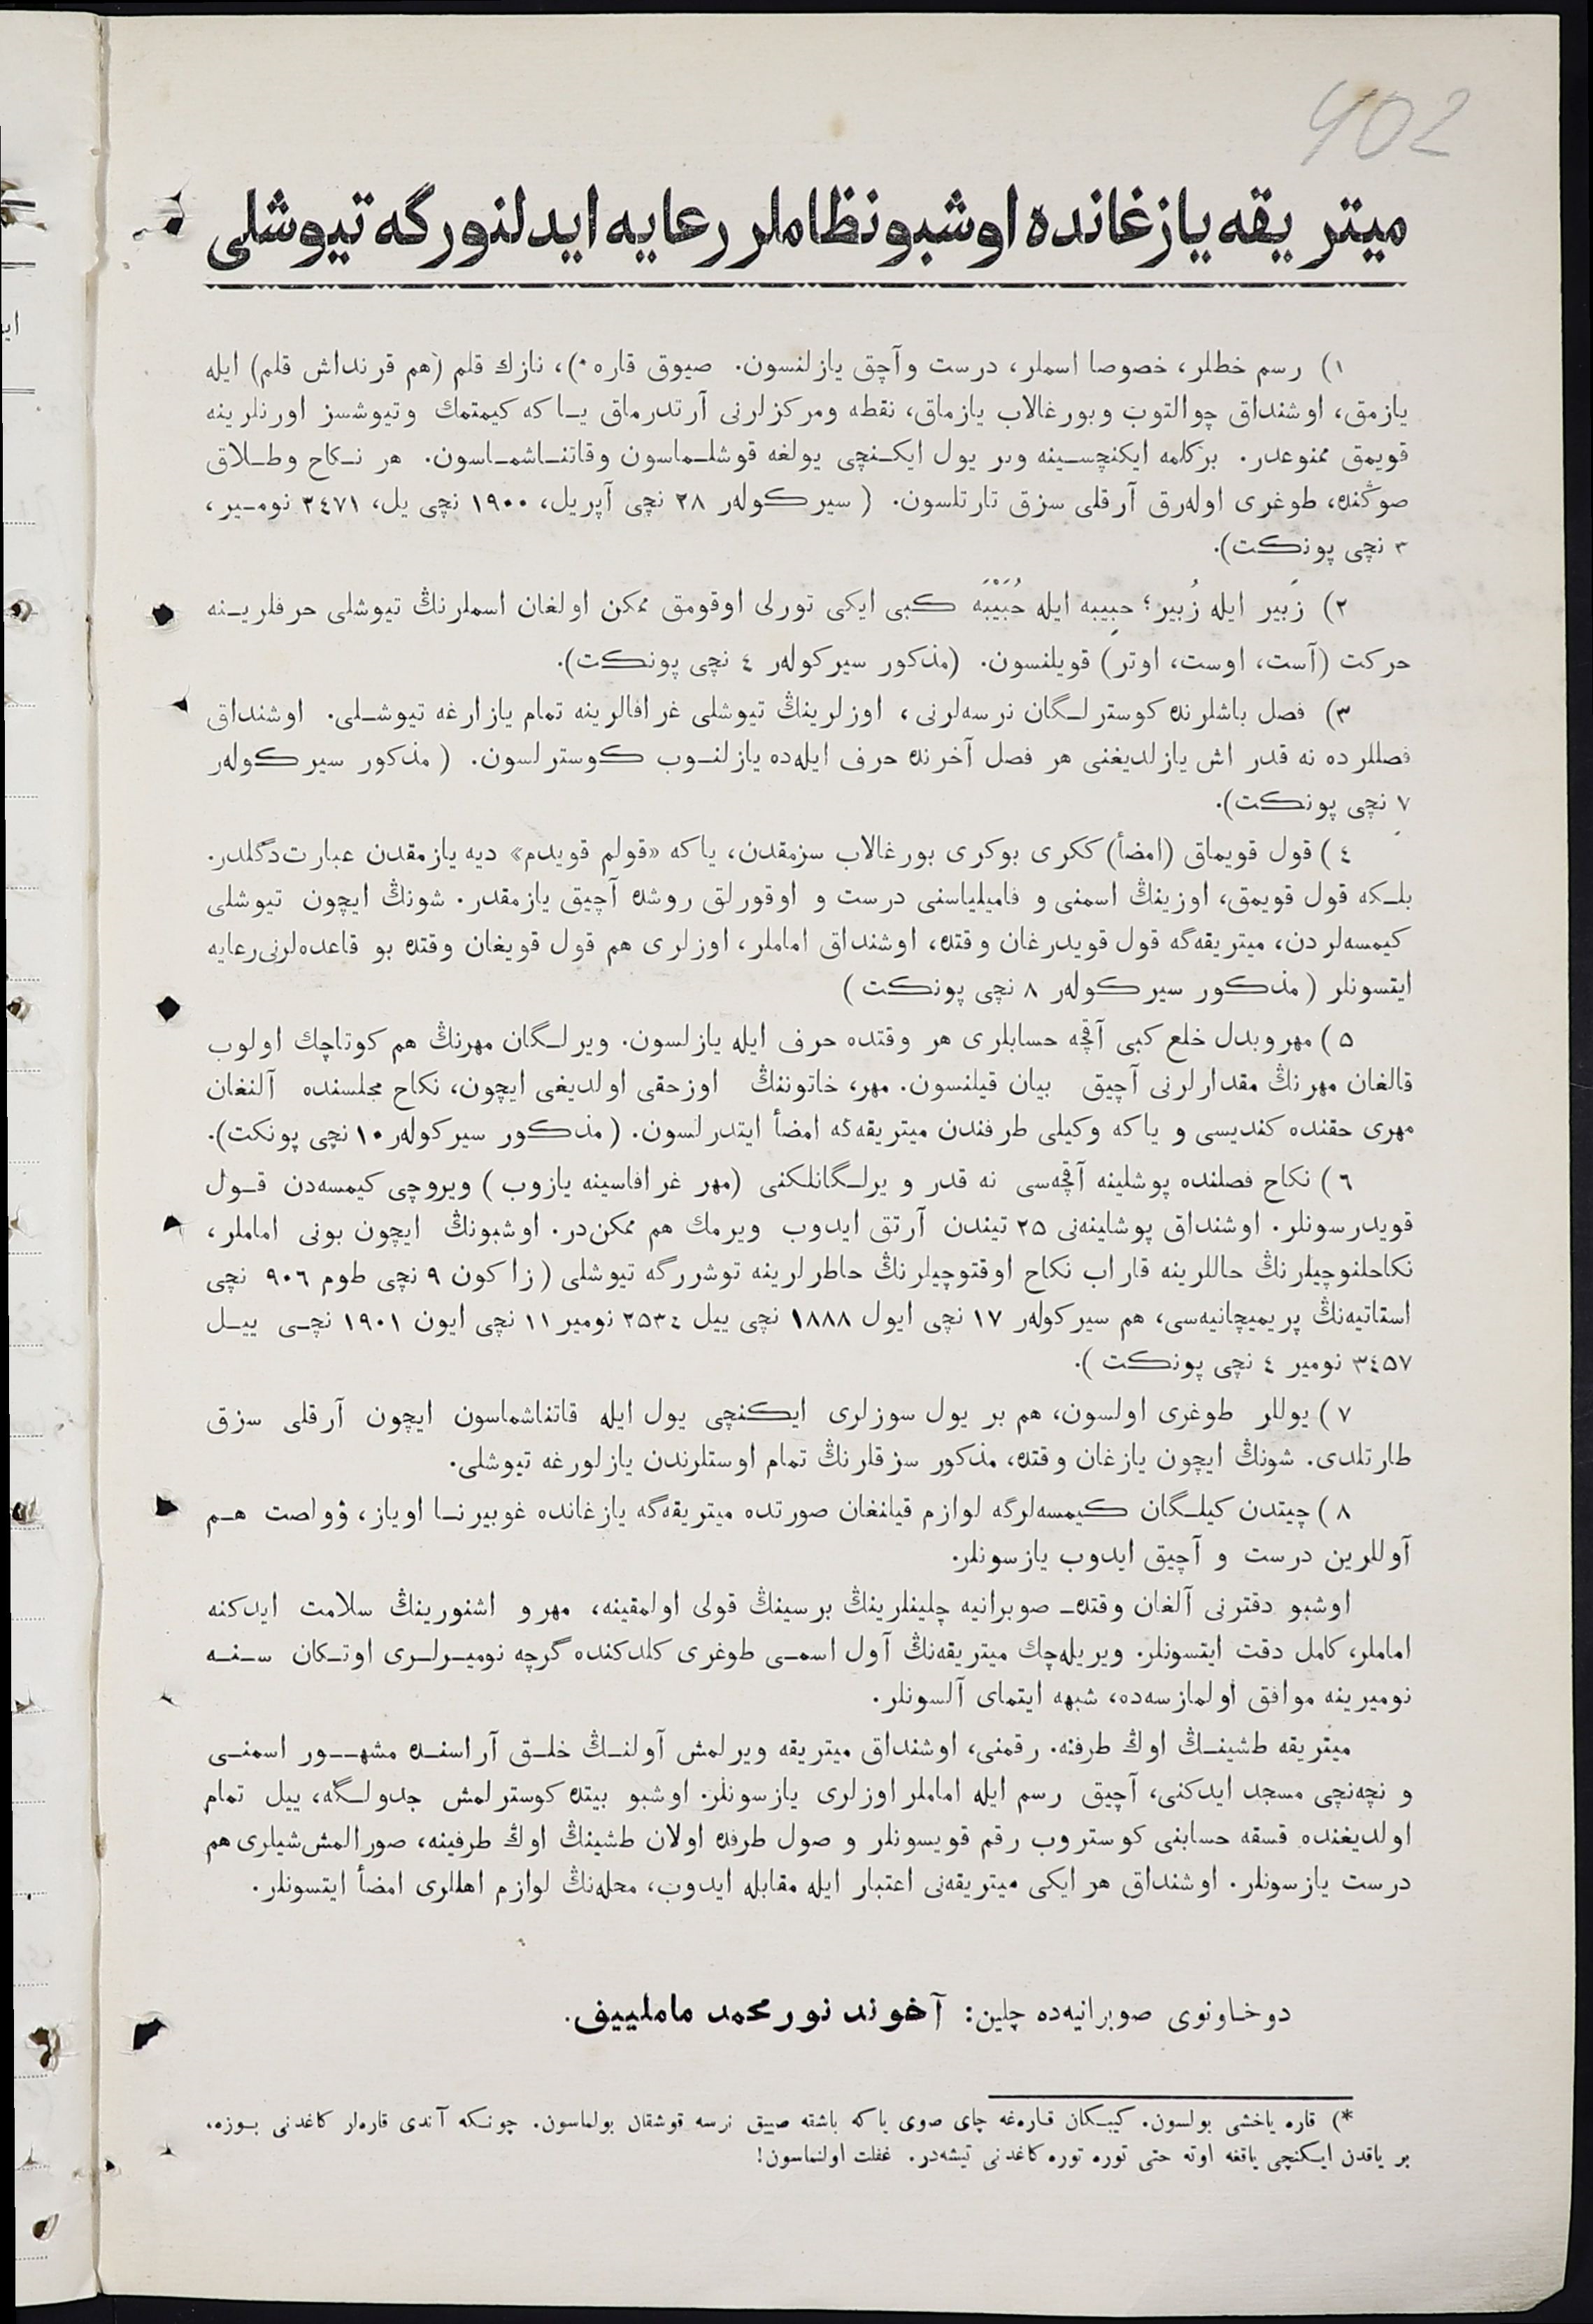 402
ميتريقه يازغانده اوشبو نظاملر رعايه ايدلنورگه تيوشلى
١) رسم خطلر، خصوصا اسملر، درست وآچق يازلنسون. صيوق قاره*)، نازك قلم (هم قرنداش قلم) ايله
يازمق، اوشنداق چوالتوب وبورغالاب يازماق، نقطه ومركزلرنى آرتدرماق يـاكه كيمتمك وتيوشسز اورنلرينه
قويمق ممنوعدر. بركلمه ايكنچسـينه وبر يول ايكـنچى يولغه قوشلـماسون وقاتنـاشمـاسون. هر نـكاح وطـلاق
صوڭنده، طوغرى اولەرق آرقلى سزق تارتلسون. (سيركولەر ٢٨ نچى آپريل، ١٩٠٠ نچى يل، ٣٤٧١ نومـير،
٣ نچى پونكت).
٢) زَبير ايله زُبير؛ حبِيبه ايله حُبَيْبَه كبى ايكى تورلى اوقومق ممكن اولغان اسملرنڭ تيوشلى حرفلريـنه
حركت (آست، اوست، اوتر) قويلنسون. (مذكور سيركولەر ٤ نچى پونكت).
٣) فصل باشلرنده كوسترلـگان نرسەلرنى، اوزلرينڭ تيوشلى غرافالرينه تمام يازارغه تيوشـلى. اوشنداق
فصللرده نه قدر اش يازلديغنى هر فصل آخرنده حرف ايلەده يازلنـوب كوسترلسون. (مذكور سيركولەر
٧ نچى پونكت).
٤) قول قويماق (امضأ) ككرى بوكرى بورغالاب سزمقدن، ياكه «قولم قويدم» ديه يازمقدن عبارت دگلدر.
بلـكه قول قويمق، اوزينڭ اسمنى و فاميلياسنى درست و اوقورلق روشده آچيق يازمقدر. شونڭ ايچون تيوشلى
كيمسەلردن، ميتريقەگه قول قويدرغان وقتده، اوشنداق اماملر، اوزلرى هم قول قويغان وقتده بو قاعدەلرنى رعايه
ايتسونلر (مذكور سيركولەر ٨ نچى پونكت)
٥) مهروبدل خلع كبى آقچه حسابلرى هر وقتده حرف ايله يازلسون. ويرلـگان مهرنڭ هم كوتاچك اولوب
قالغان مهرنڭ مقدارلرنى آچيق بيان قيلنسون. مهر، خاتوننڭ اوزحقى اولديغى ايچون، نكاح مجلسنده آلنغان
مهرى حقنده كنديسى و ياكه وكيلى طرفندن ميتريقەگه امضأ ايتدرلسون. (مذكور سيركولەر ١٠ نچى پونكت).
٦) نكاح فصلنده پوشلينه آقچەسى نه قدر ويرلـگانلكنى (مهر غرافاسينه يازوب) ويروچى كيمسەدن قـول
قويدرسونلر. اوشنداق پوشلينەنى ٢٥ تيندن آرتق ايدوب ويرمك هم ممكن در. اوشبونڭ ايچون بونى اماملر،
نكاحلنوچيلرنڭ حاللرينه قاراب نكاح اوقتوچيلرنڭ خاطرلرينه توشررگه تيوشلى (زاكون ٩ نچى طوم ٩٠٦ نچى
استاتيەنڭ پريميچانيەسى، هم سيركولەر ١٧ نچى ايول ١٨٨٨ نچى ييل ٢٥٣٤ نومير ١١ نچى ايون ١٩٠١ نچـى ييـل
٣٤٥٧ نومير ٤ نچى پونكت).
٧) يوللر طوغرى اولسون، هم بر يول سوزلرى ايكنچى يول ايله قاتناشماسون ايچون آرقلى سزق
طارتلدى. شونڭ ايچون يازغان وقتده، مذكور سزقلرنڭ تمام اوستلرندن يازلورغه تيوشلى.
٨) چيتدن كيلـگان كيمسەلرگه لوازم قيلنغان صورتده ميتريقەگه يازغانده غوبيرنـا اوياز، ۋولصت هـم
آوللرين درست و آچيق ايدوب يازسونلر.
اوشبو دفترنى آلغان وقتدەـ صوبرانيه چلينلرينڭ برسينڭ قولى اولمقينه، مهرو اشنورينڭ سلامت ايدكنه
اماملر، كامل دقت ايتسونلر. ويريلەچك ميتريقەنڭ آول اسمـى طوغرى كلدكنده گرچه نوميـرلـرى اوتـكان سـنـه
نوميرينه موافق اولمازسەده، شبهه ايتماى آلسونلر.
ميتريقه طشينـڭ اوڭ طرفنه. رقمنى، اوشنداق ميتريقه ويرلمش آولنـڭ خلـق آراسنـده مشهــور اسمنـى
و نچەنچى مسجد ايدكنى، آچيق رسم ايله اماملر اوزلرى يازسونلر. اوشبو بيتده كوسترلمش جدولـگه، ييل تمام
اولديغنده قسقه حسابنى كوستروب رقم قويسونلر و صول طرفده اولان طشينڭ اوڭ طرفينه، صورالمش شيلرى هم
درست يازسونلر. اوشنداق هر ايكى ميتريقەنى اعتبار ايله مقابله ايدوب، محلەنڭ لوازم اهللرى امضأ ايتسونلر.
دوخاونوى صوبرانيەده چلين: آخوند نورمحمد ماملييف.
*) قاره ياخشى بولسون. كيبـكان قـارەغه چاى صوى ياكه باشقه صييق نرسه قوشقان بولماسون. چونـكه آندى قارەلر كاغدنى بـوزه،
بر ياقدن ايـكنچى ياققه اوته حتى توره توره كاغدنى تيشەدر. غفلت اولنماسون!